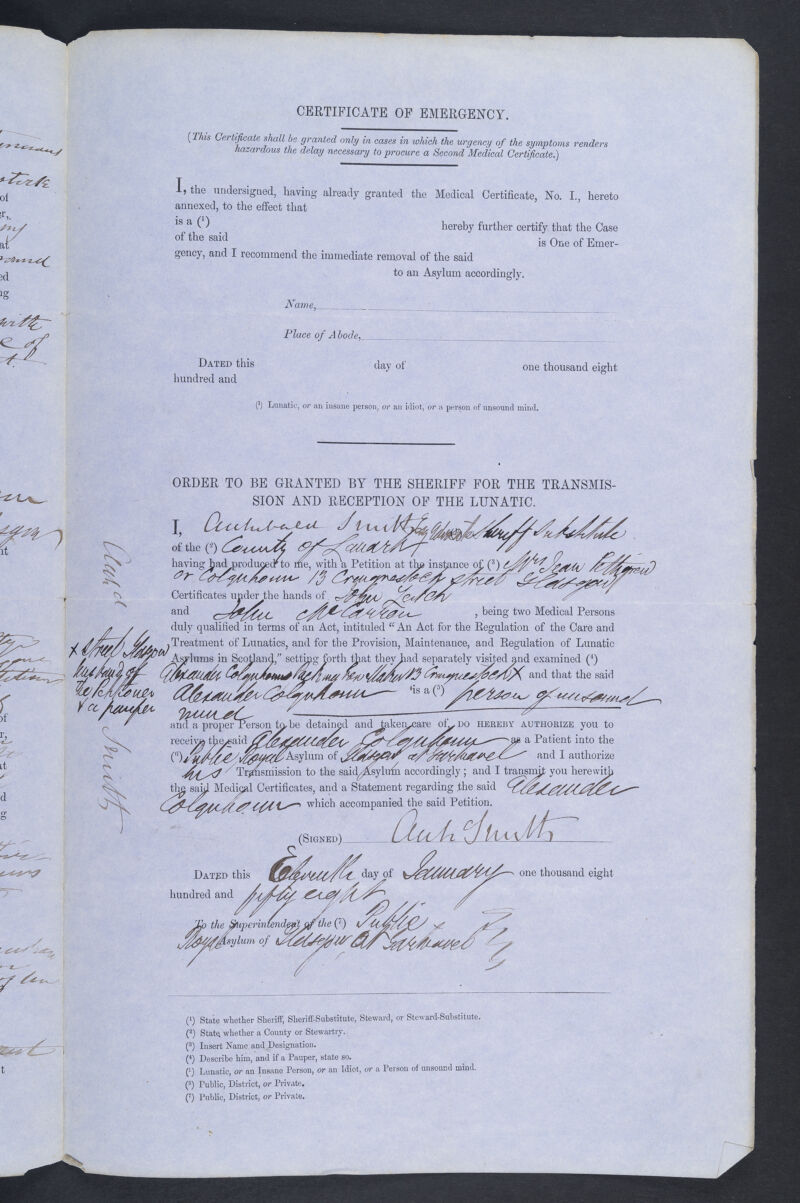 CERTIFICATE OF EMERGENCY.
(This Certificate shall be granted only in cases in which the urgency of the symptoms renders
hazardous the delay necessary to procure a Second Medical Certificate.)
I, the undersigned, having already granted the Medical Certificate, No. I., hereto
annexed, to the effect that
is a (¹) hereby further certify that the Case
of the said is One of Emer-
gency, and I recommend the immediate removal of the said
to an Asylum accordingly.
Name,
Place of Abode,
DATED this day of one thousand eight
hundred and
(¹) Lunatic, or an insane person, or an idiot, or a person of unsound mind.
ORDER TO BE GRANTED BY THE SHERIFF FOR THE TRANSMIS-
SION AND RECEPTION OF THE LUNATIC.
I, Archibald Smith Esq Advocate Sheriff Substitute
of the (²) County of Lanark
having had produced to me, with a Petition at the instance of (³) Mrs Jean Pettigrew
or Colquhoun 13 Street Glasgow
Certificates under the hands of John Leich
and John McCarron , being two Medical Persons
duly qualified in terms of an Act, intituled "An Act for the Regulation of the Care and
Treatment of Lunatics, and for the Provision, Maintenance, and Regulation of Lunatic
Asylums in Scotland," setting forth that they had separately visited and examined (⁴)
Alexander Colquhoun 13 x and that the said
x Street Glasgow
husband of
the Petitioner
& a pauper
Alexander Colquhoun is a (⁵) person of unsound
mind
and a proper Person to be detained and taken care of, DO HEREBY AUTHORIZE you to
receive the said Alexander Colquhoun as a Patient into the
(⁶) Public Royal Asylum of Glasgow, at Gartnavel and I authorize
his Transmission to the said Asylum accordingly; and I transmit you herewith
the said Medical Certificates, and a Statement regarding the said Alexander
Colquhoun which accompanied the said Petition.
Archd Smith
(SIGNED) Archd Smith
DATED this Eleventh day of January one thousand eight
hundred and fifty eight
To the Superintendent of the (⁷) Public
Royal Asylum of Glasgow, at Gartnavel
(¹) State whether Sheriff, Sheriff-Substitute, Steward, or Steward-Substitute.
(²) State whether a County or Stewartry.
(³) Insert Name and Designation.
(⁴) Describe him, and if a Pauper, state so.
(⁵) Lunatic, or an Insane Person, or an Idiot, or a Person of unsound mind.
(⁶) Public, District, or Private.
(⁷) Public, District, or Private.